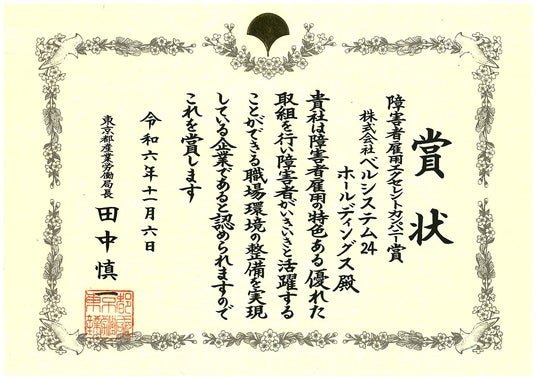 賞状
障害者雇用エクセレントカンパニー賞
株式会社ベルシステム24
ホールディングス殿
貴社は障害者雇用の特色ある優れた
取組を行い障害者がいきいきと活躍する
ことができる職場環境の整備を実現
している企業であると認められますので
これを賞します
令和六年十一月六日
東京都産業労働局長 田中慎一